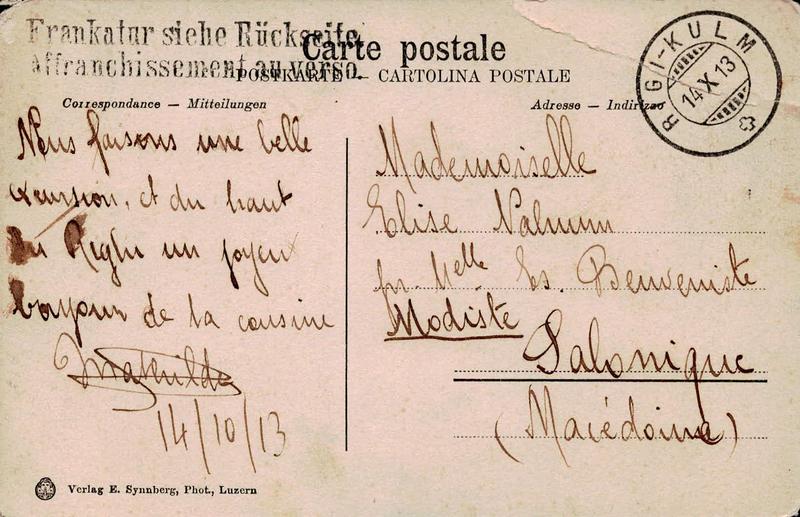 Frankatur siehe Rückseite.
Affranchissement au verso.
Carte postale
POSTKARTE — CARTOLINA POSTALE
RIGI-KULM
14 X 13
Correspondance — Mitteilungen
Adresse — Indirizzo
Nous faisons une belle
excursion, et du haut
du Righi un joyeux
bonjour de ta cousine
Mathilde
14/10/13
Mademoiselle
Elise Nahmm
pr. Melle Es. Benveniste
Modiste
Salonique
(Macédoine)
Verlag E. Synnberg, Phot., Luzern